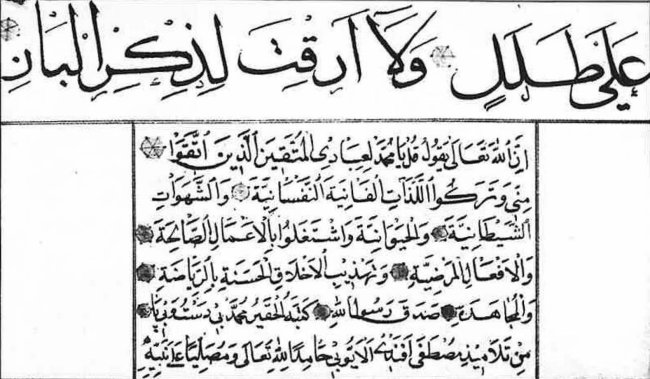 عَلَى طَلَلٍ وَلَا أَرِقْتَ لِذِكْرِ الْبَانِ
إِنَّ اللّٰهَ تَعَالَى يَقُولُ قُلْ يَا مُحَمَّدُ لِعِبَادِىَ الْمُتَّقِينَ الَّذِينَ اتَّقَوْا
مِنِّى وَتَرَكُوا اللَّذَّاتِ الْفَانِيَةَ النَّفْسَانِيَّةَ وَالشَّهَوَاتِ
الشَّيْطَانِيَّةَ وَالْحَيَوَانِيَّةَ وَاشْتَغَلُوا بِالْأَعْمَالِ الصَّالِحَةِ
وَالْأَفْعَالِ الْمَرْضِيَّةِ وَتَهْذِيبِ الْأَخْلَاقِ الْحَسَنَةِ بِالرِّيَاضَةِ
وَالْمُجَاهَدَةِ صَدَقَ رَسُولُ اللّٰهِ كَتَبَهُ الْحَقِيرُ مُحَمَّد
مِنْ تَلَامِيذِ مُصْطَفَى أَفَنْدِى الْأَيُّوبِى حَامِدًا لِلّٰهِ تَعَالَى وَمُصَلِّيًا عَلَى نَبِيِّهِ